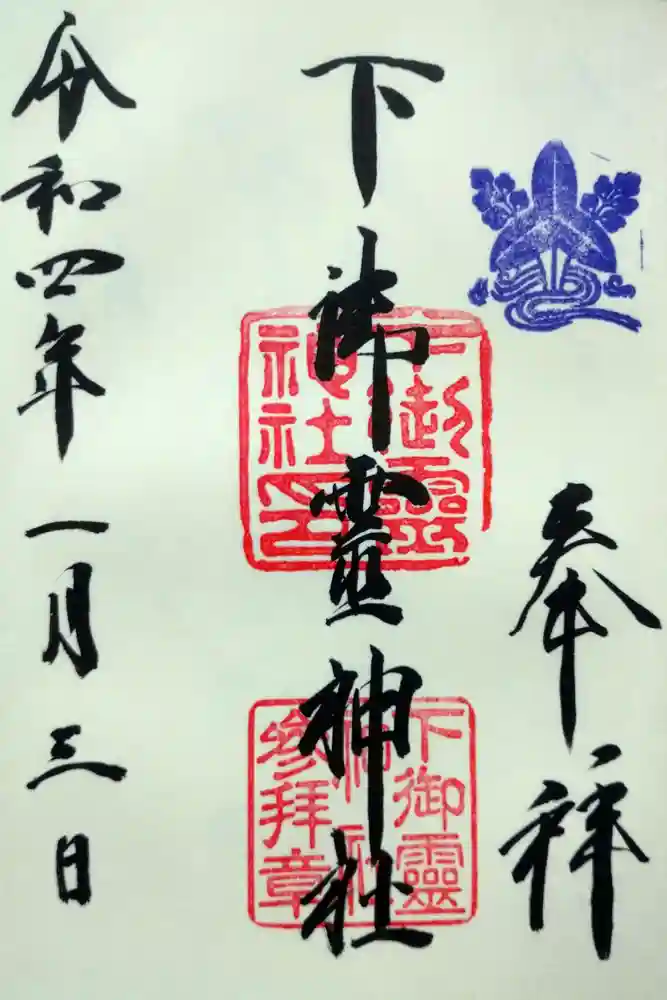 奉拝
下御霊神社
下御靈
神社印
下御靈
神社
参拝章
令和四年一月三日